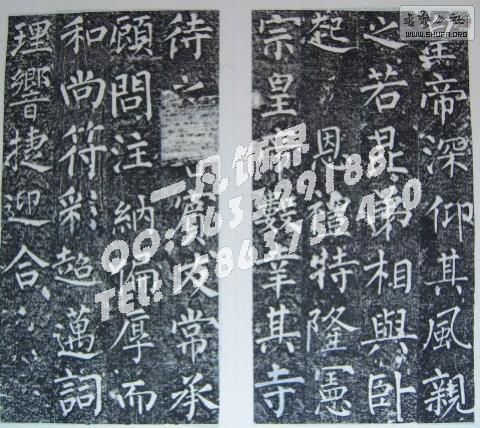 皇帝深仰其風親
之若昆弟相與卧
起恩禮特隆憲
宗皇帝數幸其寺
待之賓友常承
顧問注納偏厚而
和尚符彩超邁詞
理響捷迎合
一凡饰界
QQ:563329188
WWW.SHUFA.ORG